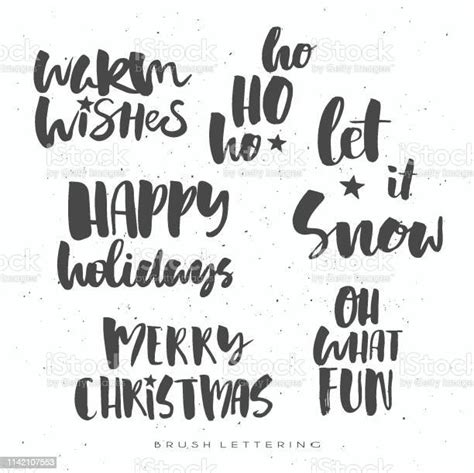 warm
wishes
ho
HO
ho
let
it
Snow
HAPPY
holidays
MERRY
CHRISTMAS
OH
WHAT
FUN
BRUSH LETTERING
iStock
Credit: Getty Images
1142107553